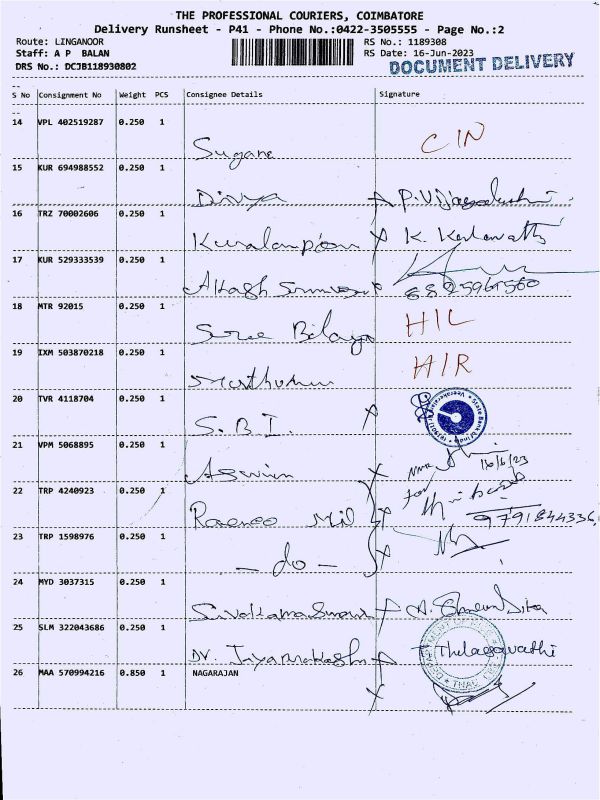 THE PROFESSIONAL COURIERS, COIMBATORE
Delivery Runsheet - P41 - Phone No.:0422-3505555 - Page No.:2
Route: LINGANOOR RS No.: 1189308
Staff: A P BALAN RS Date: 16-Jun-2023
DRS No.: DCJB118930802 DOCUMENT DELIVERY
S No Consignment No Weight PCS Consignee Details Signature
14 VPL 402519287 0.250 1
Sugane CIN
15 KUR 694988552 0.250 1
Divya
16 TRZ 70002606 0.250 1
K.
17 KUR 529333539 0.250 1
Akash
18 MTR 92015 0.250 1
Sree H/L
19 IXM 503870218 0.250 1
H/R
20 TVR 4118704 0.250 1
S.B.I. State Bank of India
21 VPM 5068895 0.250 1
Aswin 16/6/23
22 TRP 4240923 0.250 1
for
Mil 9791844336
23 TRP 1598976 0.250 1
- do -
24 MYD 3037315 0.250 1
A.
25 SLM 322043686 0.250 1
Dr.
26 MAA 570994216 0.850 1 NAGARAJAN